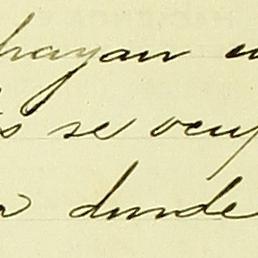 hayan
s se ocup
dunde